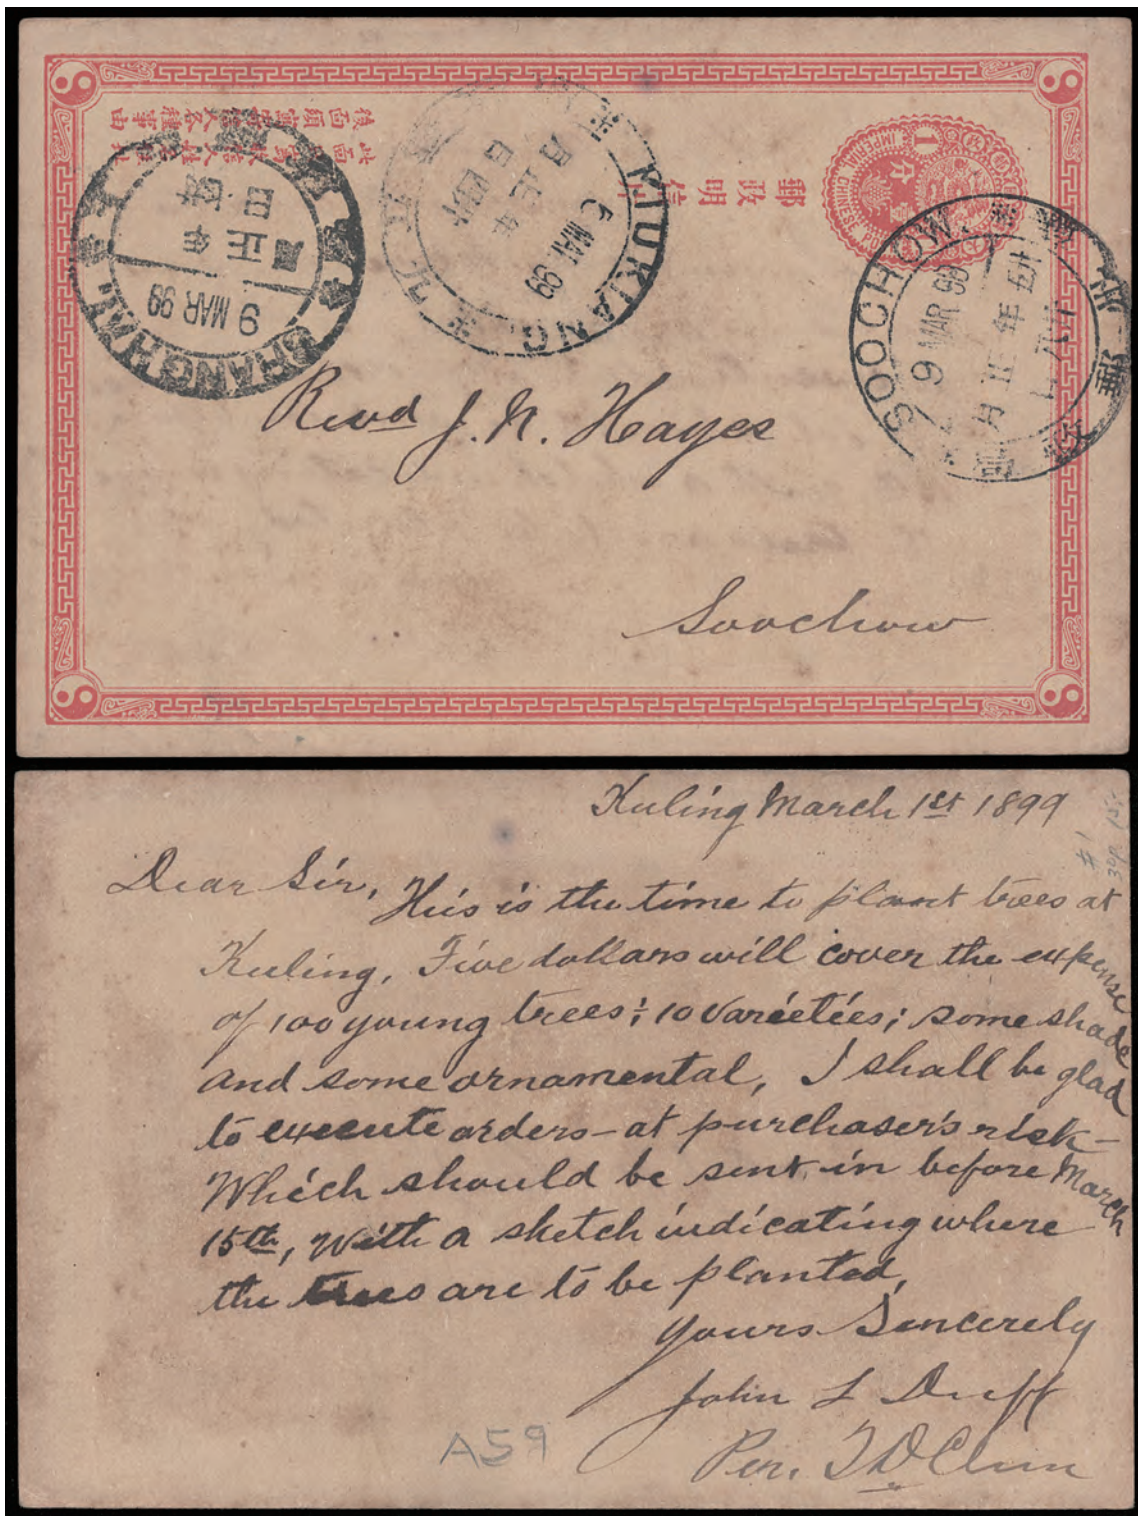 郵政明信片
IMPERIAL CHINESE POST
1
SHANGHAI
9 MAR 99
年正月
日
KIUKIANG
5 MAR 99
九江
年正月
日
SOOCHOW
9 MAR 99
年正月
Revd J. N. Hayes
Soochow
Kuling March 1st 1899
Dear Sir,
This is the time to plant trees at
Kuling, Five dollars will cover the expense
of 100 young trees: 10 varieties; some shade
and some ornamental, I shall be glad
to execute orders – at purchaser's risk –
Which should be sent in before March
15th, With a sketch indicating where
the trees are to be planted,
Yours Sincerely
John L Duff
Per.
A59
#1